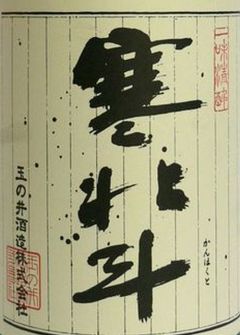 寒北斗
かんほくと
玉の井酒造株式会社